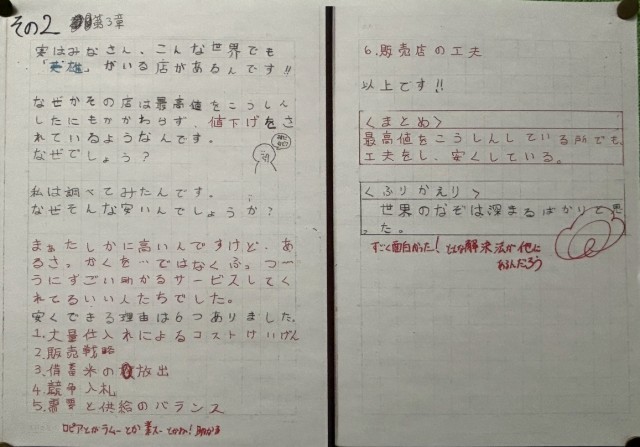 その2 第3章
実はみなさん、こんな世界でも
「英雄」がいる店があるんです!!
なぜかその店は最高値をこうしん
したにもかかわらず、値下げをさ
れているようなんです。
なぜでしょう?
私は調べてみたんです。
なぜそんな安いんでしょうか?
まぁたしかに高いんですけど、あ
るさっかくを…ではなくふっつー
うにすごい助かるサービスしてく
れてるいい人たちでした。
安くできる理由は6つありました。
1.大量仕入れによるコストけいげん
2.販売戦略
3.備蓄米の放出
4.競争入札
5.需要と供給のバランス
ロピアとかラムーとか 業スーとかね! 助かる
6.販売店の工夫
以上です!!
<まとめ>
最高値をこうしんしている所でも、
工夫をし、安くしている。
<ふりかえり>
世界のなぞは深まるばかりと思
った。
すごく面白かった! どんな解決法が他に
あるんだろう